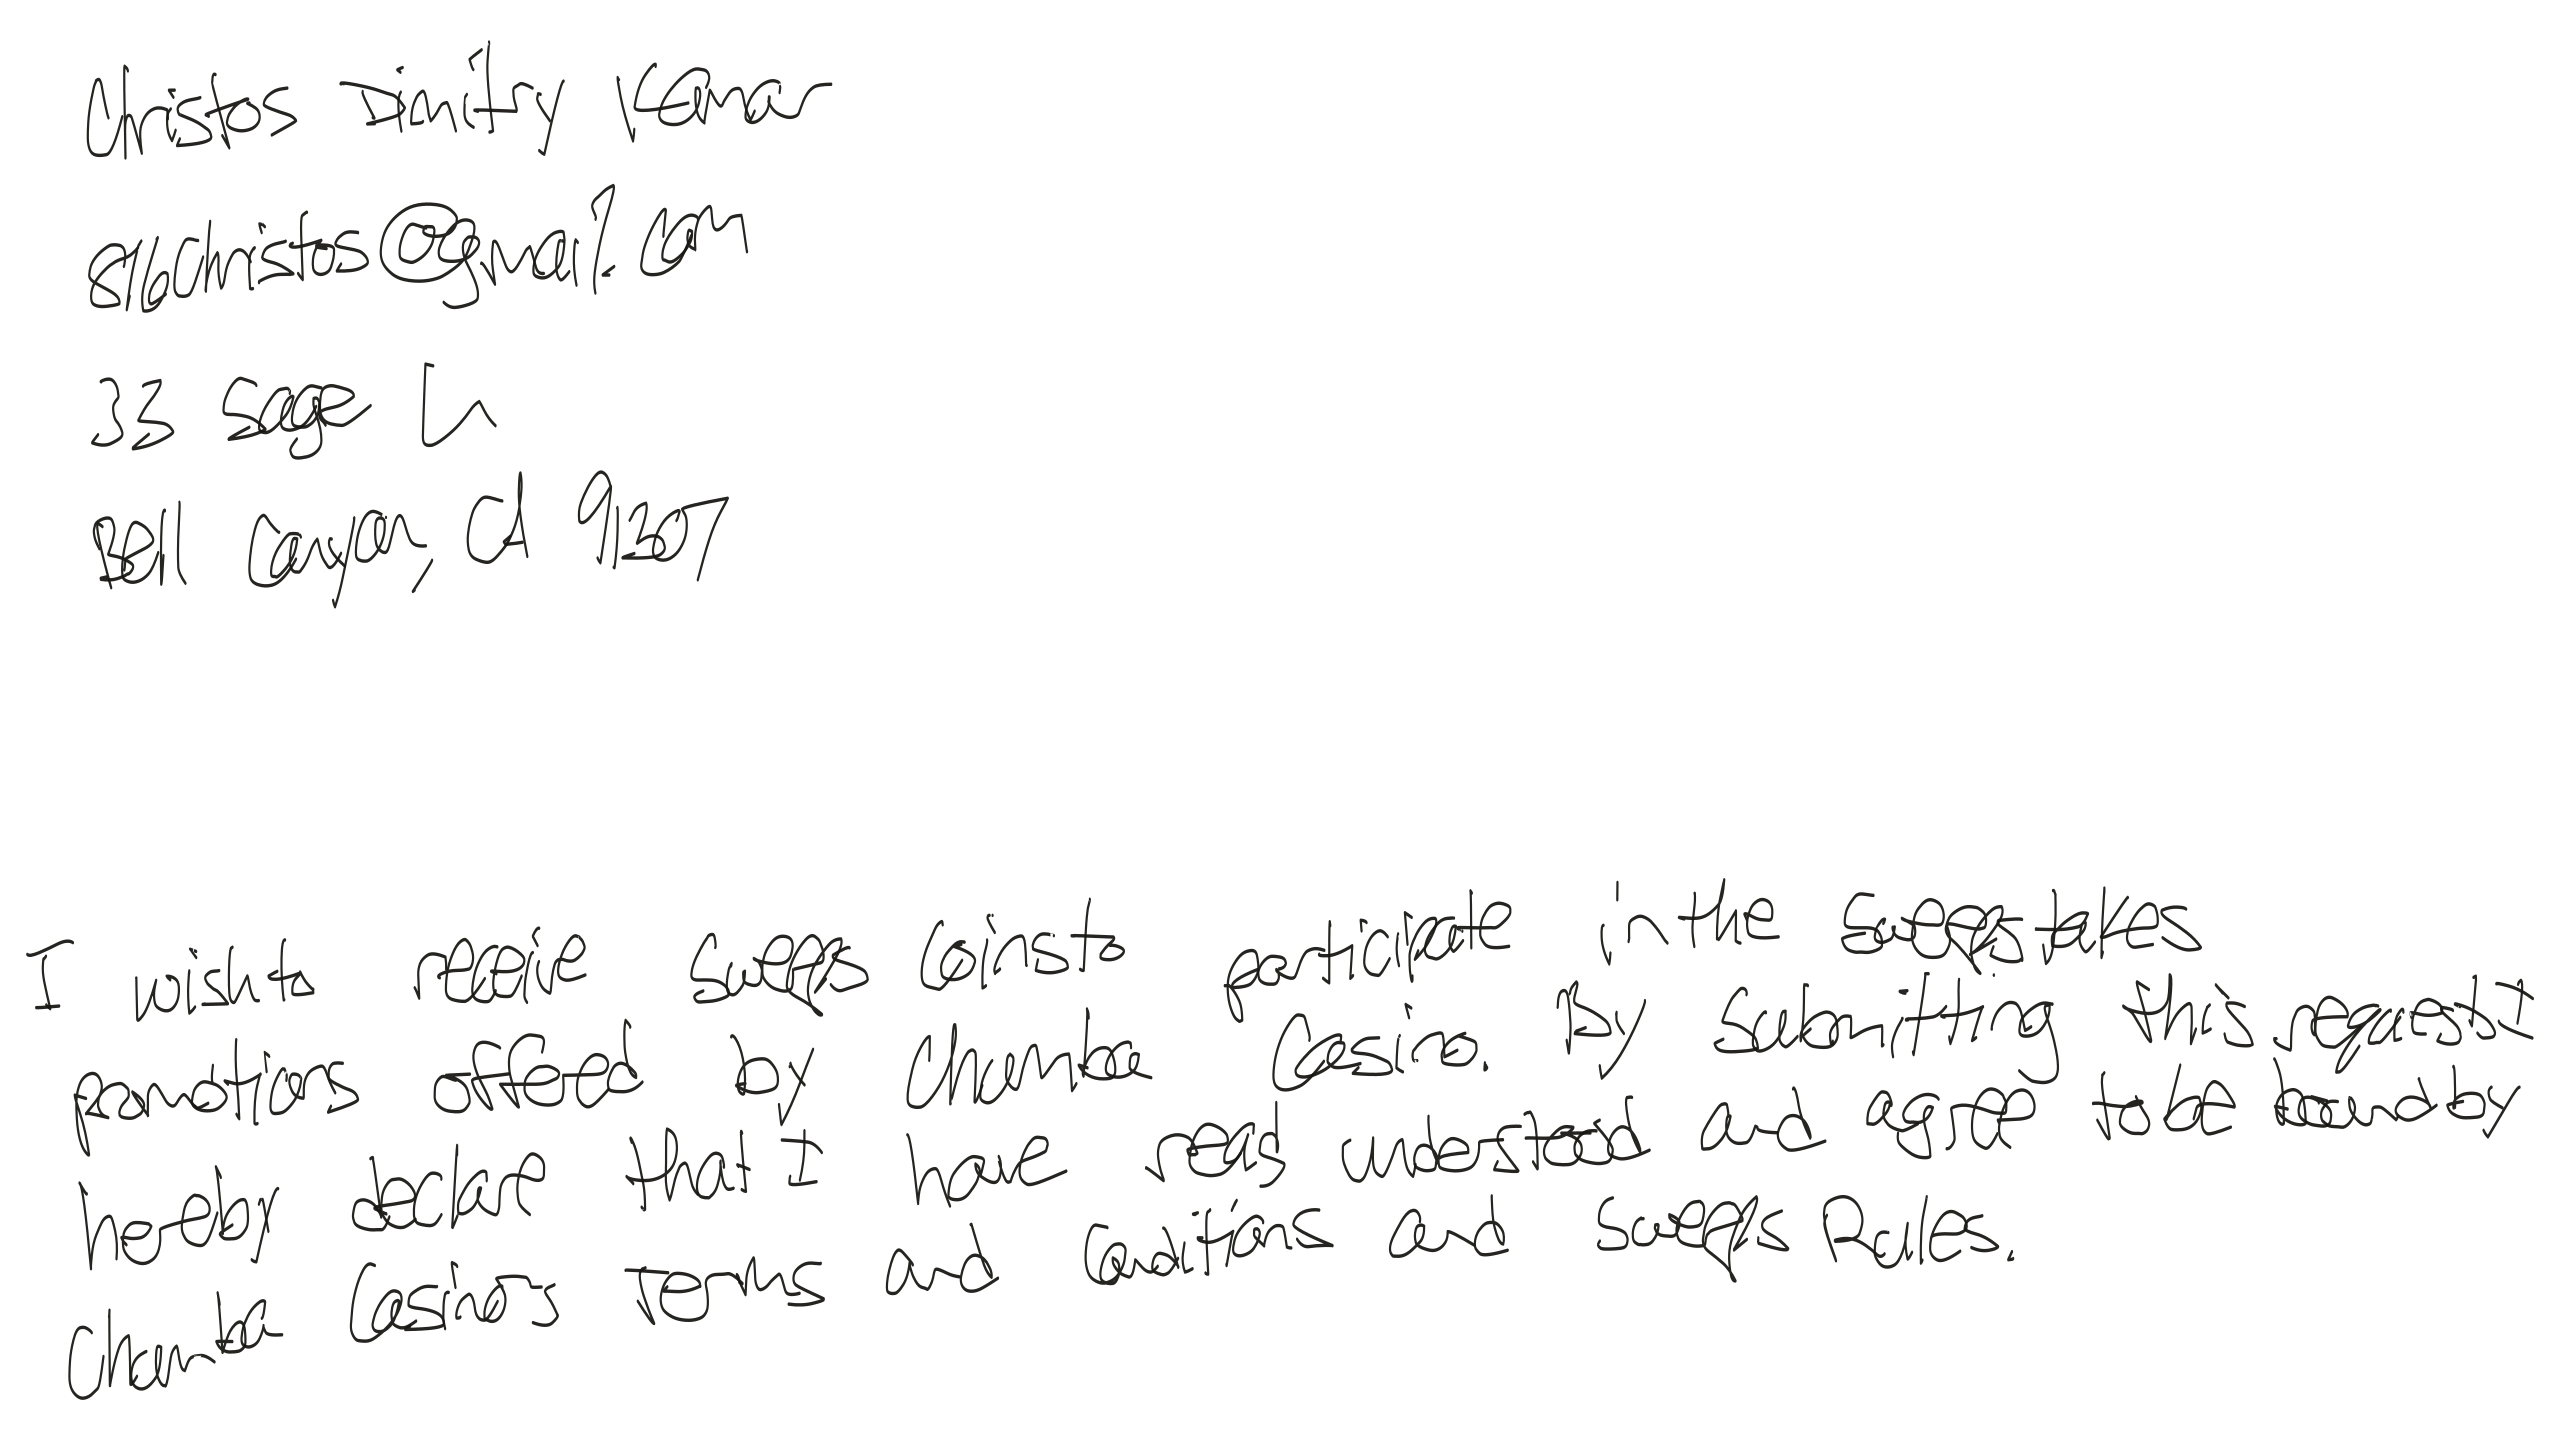 Christos Dimitry Kamar
816Christos@gmail.com
33 Sage Ln
Bell Canyon, CA 91307
I wish to receive Sweeps Coins to participate in the sweepstakes
promotions offered by Chumba Casino. By Submitting this request I
hereby declare that I have read understood and agree to be bound by
Chumba Casino's Terms and Conditions and Sweeps Rules.